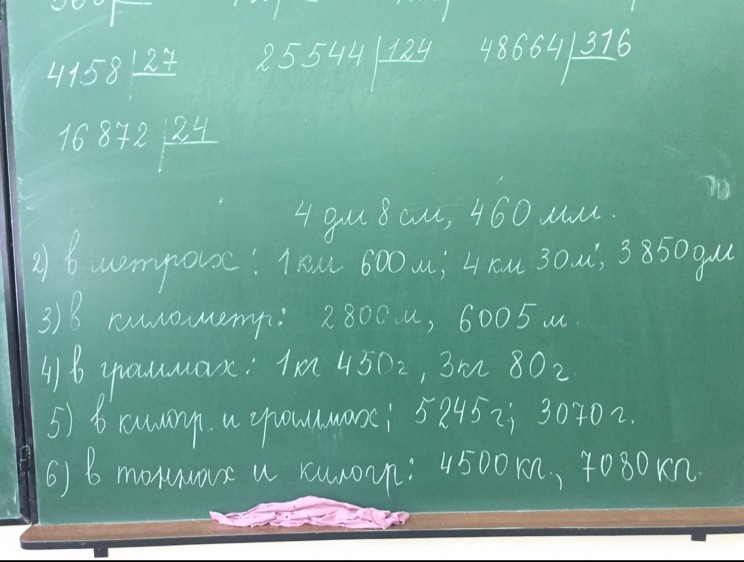 4158 27 25544 124 48664 316
16872 24
4 дм 8 см, 460 мм.
2) в метрах: 1км 600м; 4 км 30м; 3850дм
3) в километр: 2800м, 6005м.
4) в граммах: 1кг 450г, 3кг 80г.
5) в килогр. и граммах; 5245г; 3070г.
6) в тоннах и килогр: 4500кг., 7080кг.